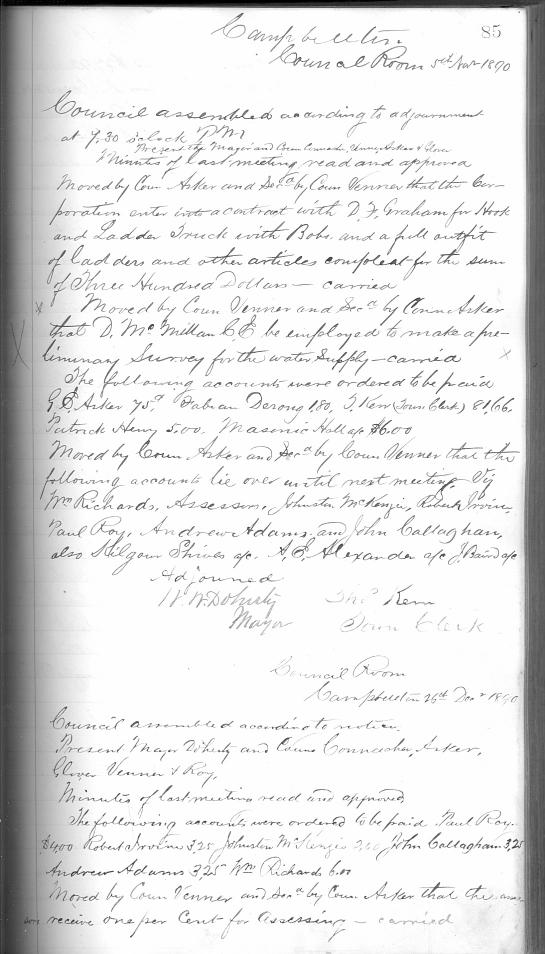 85
Campbellton
Council Room 5th Nov 1890
Council assembled according to adjournment
at 7.30 o'clock P M
Present the Mayor and Coun Connacher, Venner, Asker & Glover
Minutes of last meeting read and approved
Moved by Coun Asker and Secd by Coun Venner that the Cor-
poration enter into a contract with D. F. Graham for Hook
and Ladder Truck with Bobs and a full outfit
of ladders and other articles compleat for the sum
of Three Hundred Dollars — carried
x Moved by Coun Venner and Secd by Coun Asker
X that D. McMillan C. E be employed to make a pre-
liminary Survey for the water Supply — carried x
The following accounts were ordered to be paid
Asker 75 Fabian 1.80, T. Kerr (Town Clerk) 81,66.
Patrick Henry 5.00. Masonic Hall a/c $6.00
Moved by Coun Asker and Secd by Coun Venner that the
following accounts lie over until next meeting Viz
Wm Richards, Assessors, Johnston McKenzie, Robert Irvine,
Paul Roy, Andrew Adams, and John Callaghan,
also Kilgour Shives a/c. A. E. Alexander a/c J. Baird a/c
Adjourned
W. W. Doherty Thos Kerr
Mayor Town Clerk
Council Room
Campbellton 26th Decr 1890
Council assembled according to notice
Present Mayor Doherty and Couns Connacher, Asker,
Glover Venner & Roy,
Minutes of last meeting read and approved
The following accounts were ordered to be paid Paul Roy.
$4.00 Robert Irvine 3.25 Johnston McKenzie John Callagham 3,25
Andrew Adams 3.25 Wm Richards 6.00
Moved by Coun Venner and Secd by Coun Asker that the asses
sors receive one per Cent for Assessing — carried